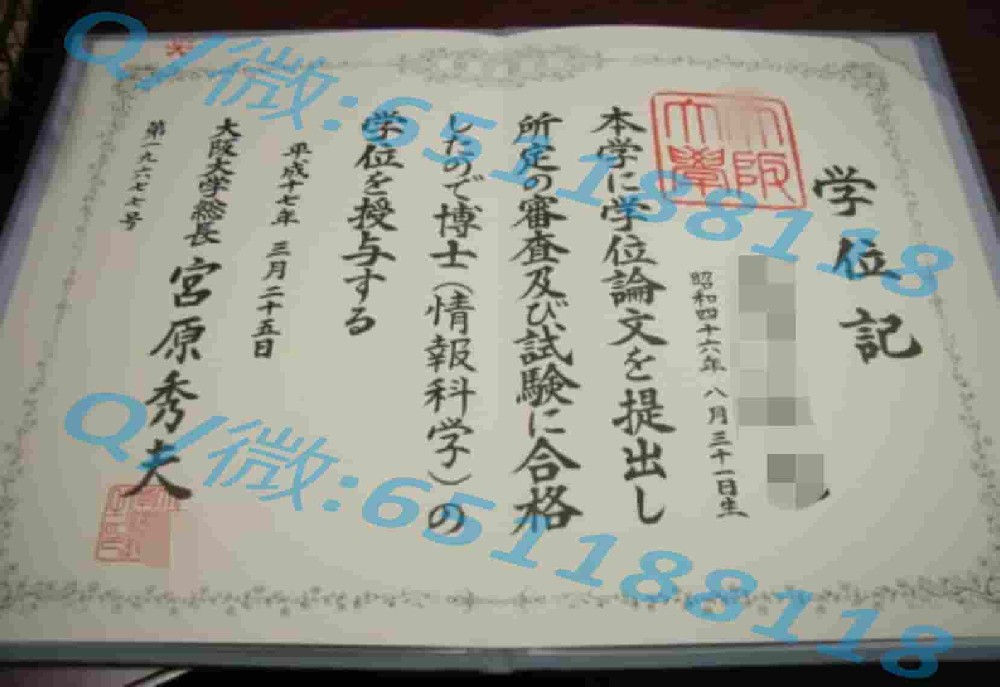 学位記
大阪
大學
昭和四十六年八月三十一日生
本学に学位論文を提出し
所定の審査及び試験に合格
したので博士(情報科学)の
学位を授与する
平成十七年三月二十五日
大阪大学総長 宮原秀夫
第一九六七七号
Q/微:651188118
Q/微:651188118